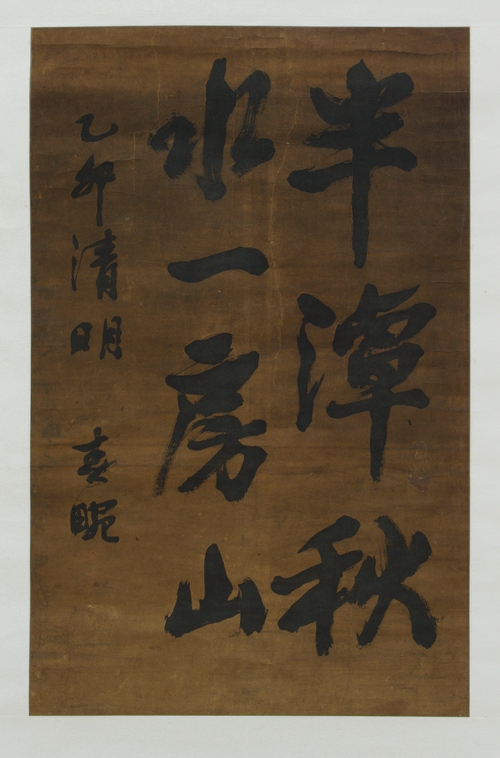 半潭秋
水一房山
乙卯清明